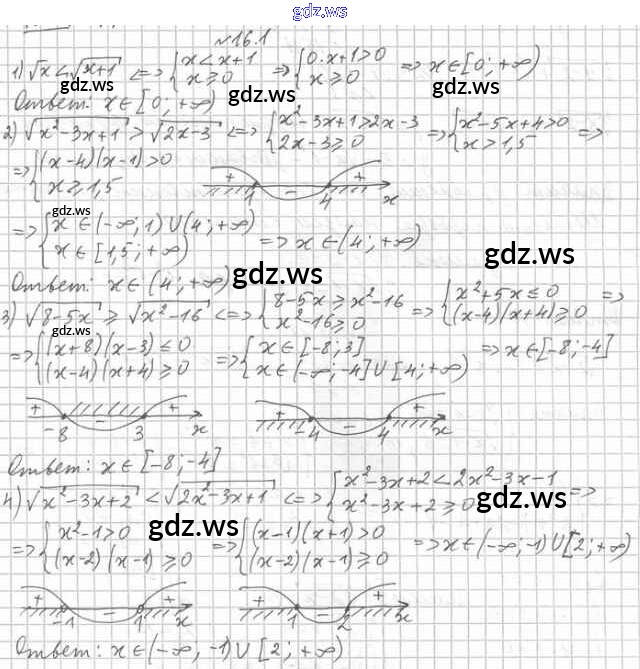 gdz.ws
№16.1
1) √x < √x+1 <=> { x < x+1 => { 0·x+1>0 => x∈[0; +∞)
x ≥ 0 x ≥ 0
gdz.ws gdz.ws
Ответ: x∈[0; +∞)
2) √x²-3x+1 > √2x-3 <=> { x²-3x+1>2x-3 => { x²-5x+4>0 =>
2x-3≥0 x>1,5
=> { (x-4)(x-1)>0
x≥1,5
+ - +
1 4 x
gdz.ws
=> { x∈(-∞; 1)∪(4; +∞) => x∈(4; +∞)
x∈[1,5; +∞)
gdz.ws
Ответ: x∈(4; +∞)
gdz.ws
3) √8-5x ≥ √x²-16 <=> { 8-5x ≥ x²-16 => { x²+5x≤0 =>
x²-16≥0 (x-4)(x+4)≥0
gdz.ws
=> { (x+8)(x-3)≤0 => { x∈[-8; 3] => x∈[-8; -4]
(x-4)(x+4)≥0 x∈(-∞; -4]∪[4; +∞)
+ - + + - +
-8 3 x -4 4 x
Ответ: x∈[-8; -4]
4) √x²-3x+2 < √2x²-3x+1 <=> { x²-3x+2<2x²-3x-1 =>
x²-3x+2≥0
gdz.ws
gdz.ws
=> { x²-1>0 => { (x-1)(x+1)>0 => x∈(-∞; -1)∪[2; +∞)
(x-2)(x-1)≥0 (x-2)(x-1)≥0
+ - + + - +
-1 1 x 1 2 x
Ответ: x∈(-∞; -1)∪[2; +∞)